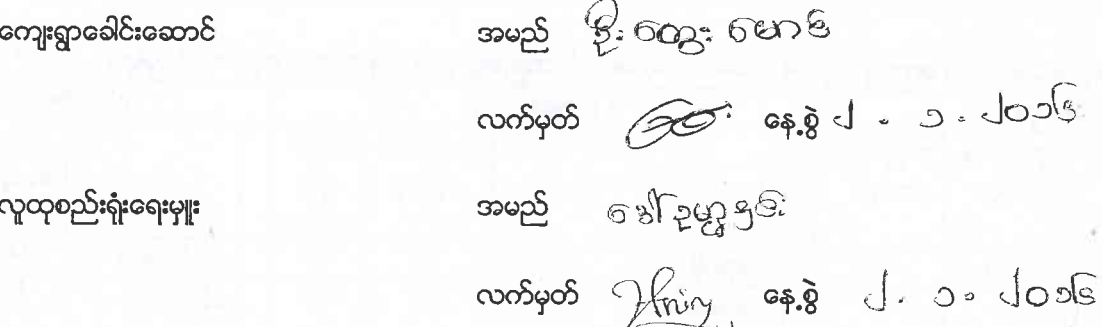 ကျေးရွာခေါင်းဆောင် အမည် ဦး ထွေး မောင်
လက်မှတ် နေ့စွဲ ၂ . ၁ . ၂၀၁၆
လူထုစည်းရုံးရေးမှူး အမည် ဒေါ်ဥမ္မာရှင်း
လက်မှတ် နေ့စွဲ ၂ . ၁ . ၂၀၁၆